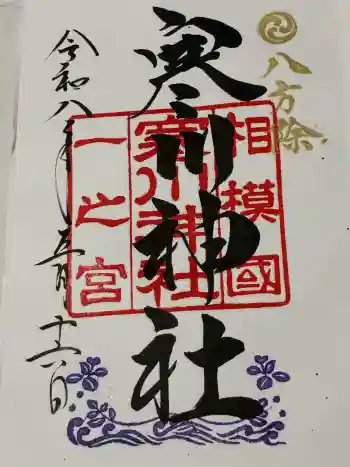 八方除
寒川神社
相模國
寒川神社
一之宮
令和八年五月十六日